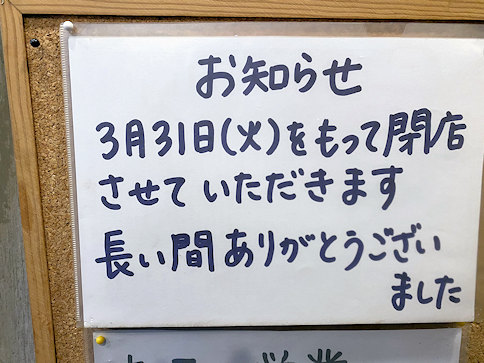 お知らせ
3月31日(火)をもって閉店
させていただきます
長い間ありがとうござい
ました